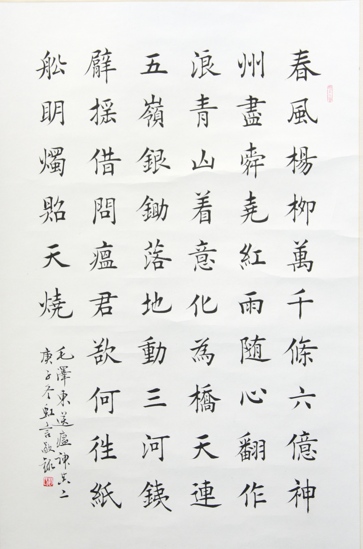 春風楊柳萬千條六億神
州盡舜堯紅雨随心翻作
浪青山着意化為橋天連
五嶺銀鋤落地動三河鐵
臂摇借問瘟君欲何往紙
船明燭照天燒
毛澤東送瘟神其二
庚子冬